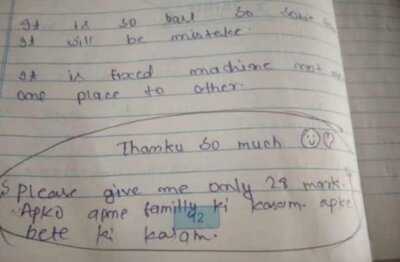 It is so bad so some
It will be mistake.
It is fixed machine not
one place to other.
Thanku so much
Please give me only 28 mark.
Apko apne familly ki kasam. apke
92
bete ki kasam.